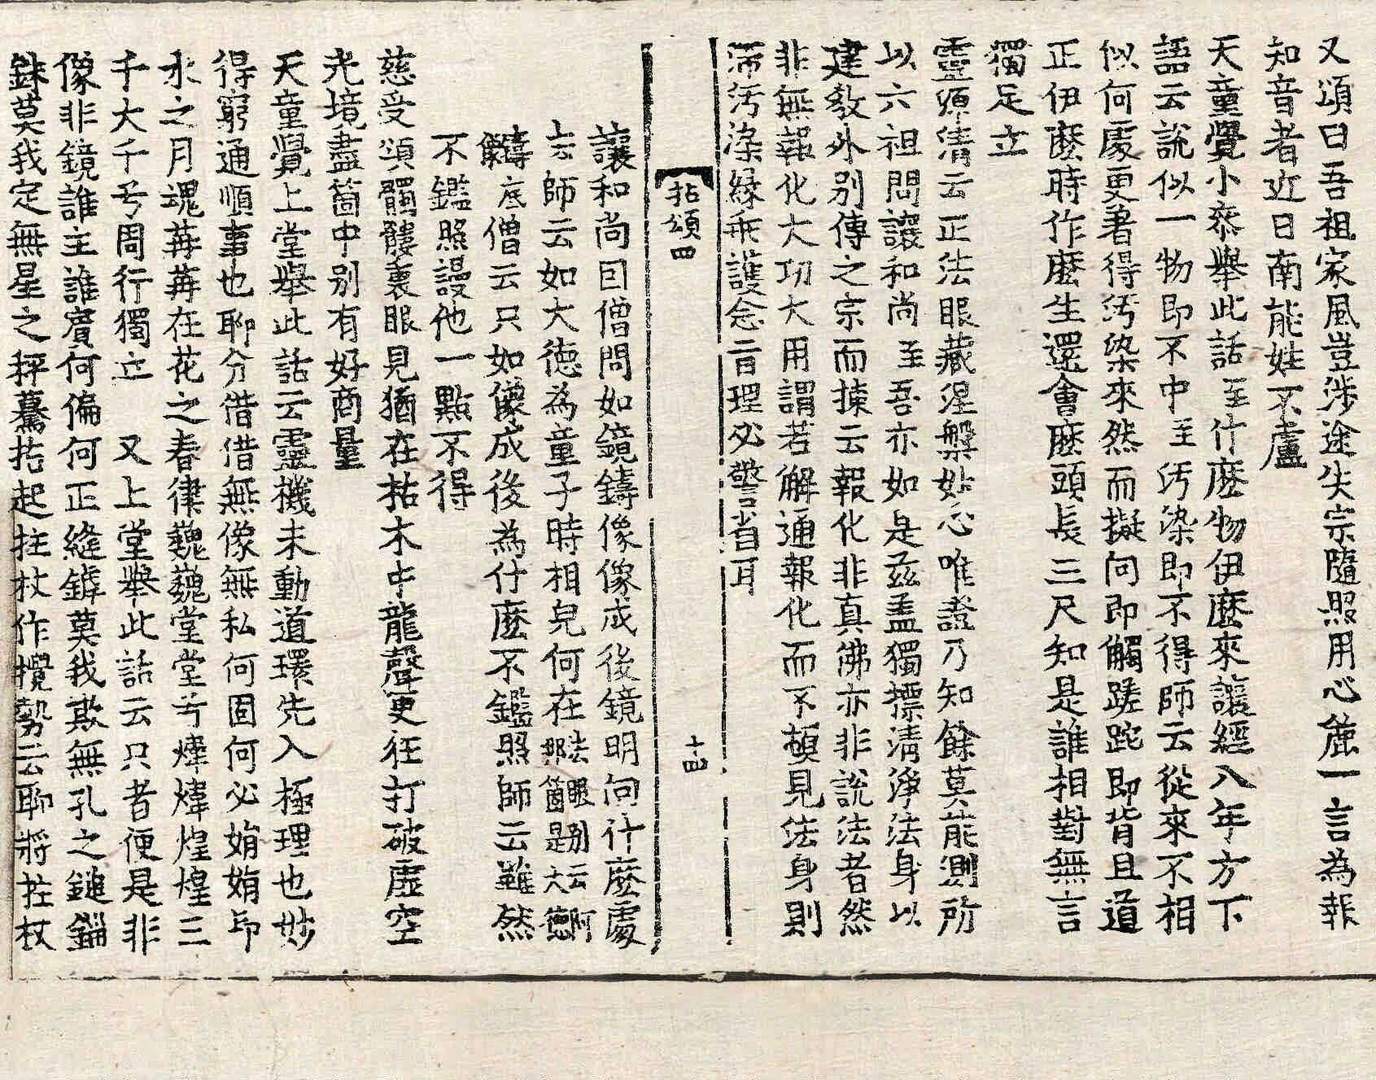 又頌曰吾祖家風豈涉途失宗隨照用心麁一言為報
知音者近日南能姓不盧
天童覺小叅舉此話至什麽物伊麽來讓經八年方下
語云說似一物即不中至汚染即不得師云從來不相
似何處更著得汚染來然而擬向即觸蹉跎即背且道
正伊麽時作麽生還會麽頭長三尺知是誰相對無言
獨足立
靈源清云正法眼藏涅槃妙心唯證乃知餘莫能測所
以六祖問讓和尚至吾亦如是玆盖獨摽清淨法身以
建教外別傳之宗而揀云報化非真佛亦非說法者然
非無報化大功大用謂若解通報化而不頓見法身則
滯汚染緣乖護念旨理必警省耳
拈頌四
十四
讓和尚因僧問如鏡鑄像像成後鏡明向什麽處
去師云如大德為童子時相皃何在法眼別云阿那箇是大德
鑄底僧云只如像成後為什麽不鑑照師云雖然
不鑑照謾他一點不得
慈受頌髑髏裏眼見猶在枯木中龍聲更狂打破虛空
光境盡箇中別有好商量
天童覺上堂舉此話云靈機未動道環先入極理也妙
得窮通順事也聊分借借無像無私何固何必娟娟印
水之月瑰苒苒在花之春律巍巍堂堂兮煒煒煌煌三
千大千兮周行獨立 又上堂舉此話云只者便是非
像非鏡誰主誰賓何偏何正縫罅莫我欺無孔之鎚錙
銖莫我定無星之秤驀拈起拄杖作攪勢云聊將拄杖